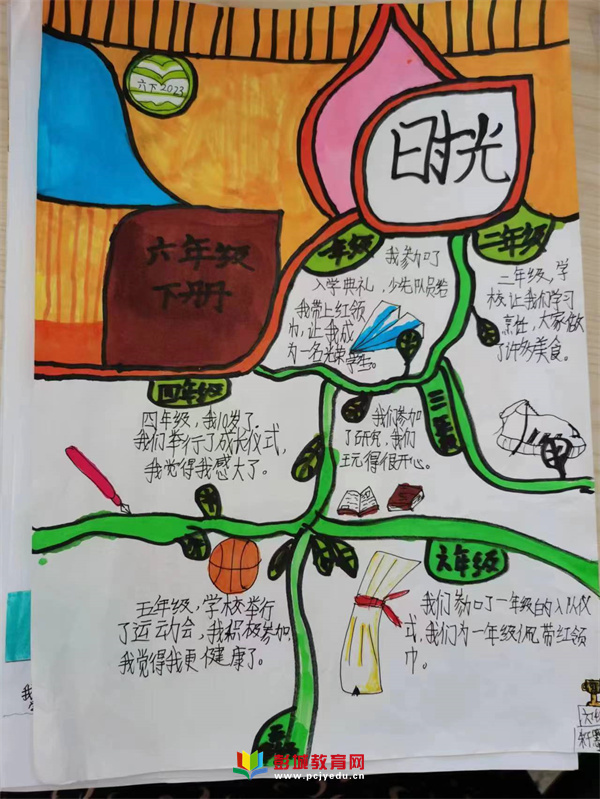 六下2023
时光
六年级
下册
一年级
我参加了
入学典礼,少先队员给
我带上红领
巾,让我成
为一名光荣学生。
二年级
二年级,学
校让我们学习
烹饪,大家做
了许多美食。
四年级
四年级,我10岁了。
我们举行了成长仪式,
我觉得我感大了。
三年级
我们参加
了研究,我们
玩得很开心。
五年级,学校举行
了运动会,我积极参加,
我觉得我更健康了。
六年级
我们参加了一年级的入队仪
式,我们为一年级佩带红领
巾。
彭城教育网
www.pcjyedu.cn